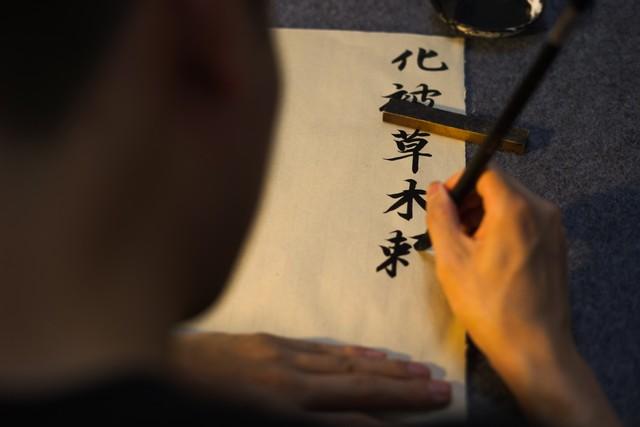 化被草木